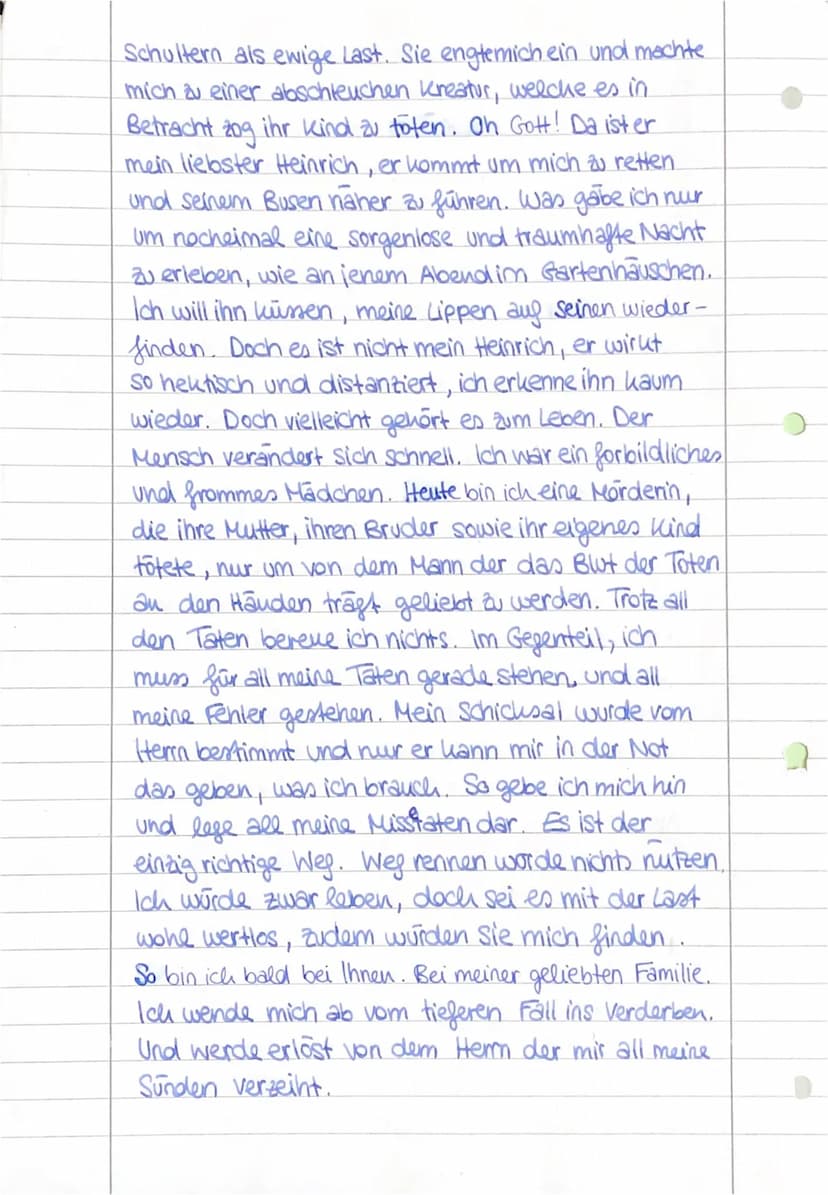 Schultern als ewige Last. Sie engte mich ein und machte
mich zu einer abscheuchen Kreatur, welche es in
Betracht zog ihr Kind zu töten. Oh Gott! Da ist er
mein liebster Heinrich, er kommt um mich zu retten
und seinem Busen näher zu führen. Was gäbe ich nur
um nocheimal eine sorgenlose und traumhafte Nacht
zu erleben, wie an jenem Abend im Gartenhäuschen.
Ich will ihn küssen, meine Lippen auf seinen wieder-
finden. Doch es ist nicht mein Heinrich, er wirkt
so hektisch und distanziert, ich erkenne ihn kaum
wieder. Doch vielleicht gehört es zum Leben. Der
Mensch verändert sich schnell. Ich war ein forbildliches
und frommes Mädchen. Heute bin ich eine Mörderin,
die ihre Mutter, ihren Bruder sowie ihr eigenes Kind
tötete, nur um von dem Mann der das Blut der Toten
an den Händen trägt geliebt zu werden. Trotz all
den Taten bereue ich nichts. Im Gegenteil, ich
muss für all meine Taten gerade stehen, und all
meine Fehler gestehen. Mein Schicksal wurde vom
Herrn bestimmt und nur er kann mir in der Not
das geben, was ich brauch. So gebe ich mich hin
und lege all meine Misstaten dar. Es ist der
einzig richtige Weg. Weg rennen würde nichts nützen.
Ich würde zwar leben, doch sei es mit der Last
wohl wertlos, zudem würden Sie mich finden.
So bin ich bald bei Ihnen. Bei meiner geliebten Familie.
Ich wende mich ab vom tieferen Fall ins Verderben.
Und werde erlöst von dem Herrn der mir all meine
Sünden verzeiht.